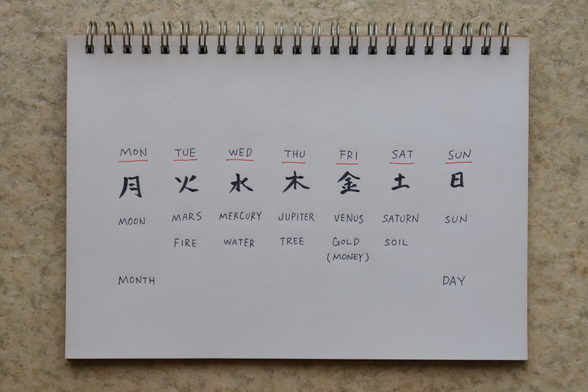 MON TUE WED THU FRI SAT SUN
月 火 水 木 金 土 日
MOON MARS MERCURY JUPITER VENUS SATURN SUN
FIRE WATER TREE GOLD SOIL
(MONEY)
MONTH DAY